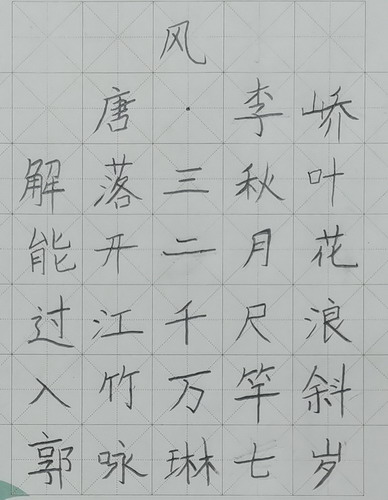 风
唐·李峤
解落三秋叶
能开二月花
过江千尺浪
入竹万竿斜
郭咏琳七岁